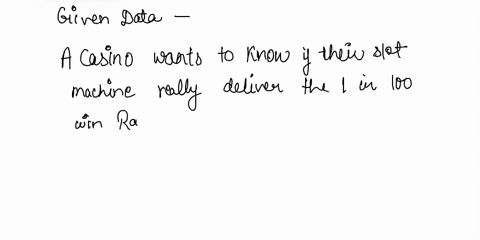 Given Data —
A Casino wants to know if their slot
machine rally deliver the 1 in 100
win Ra